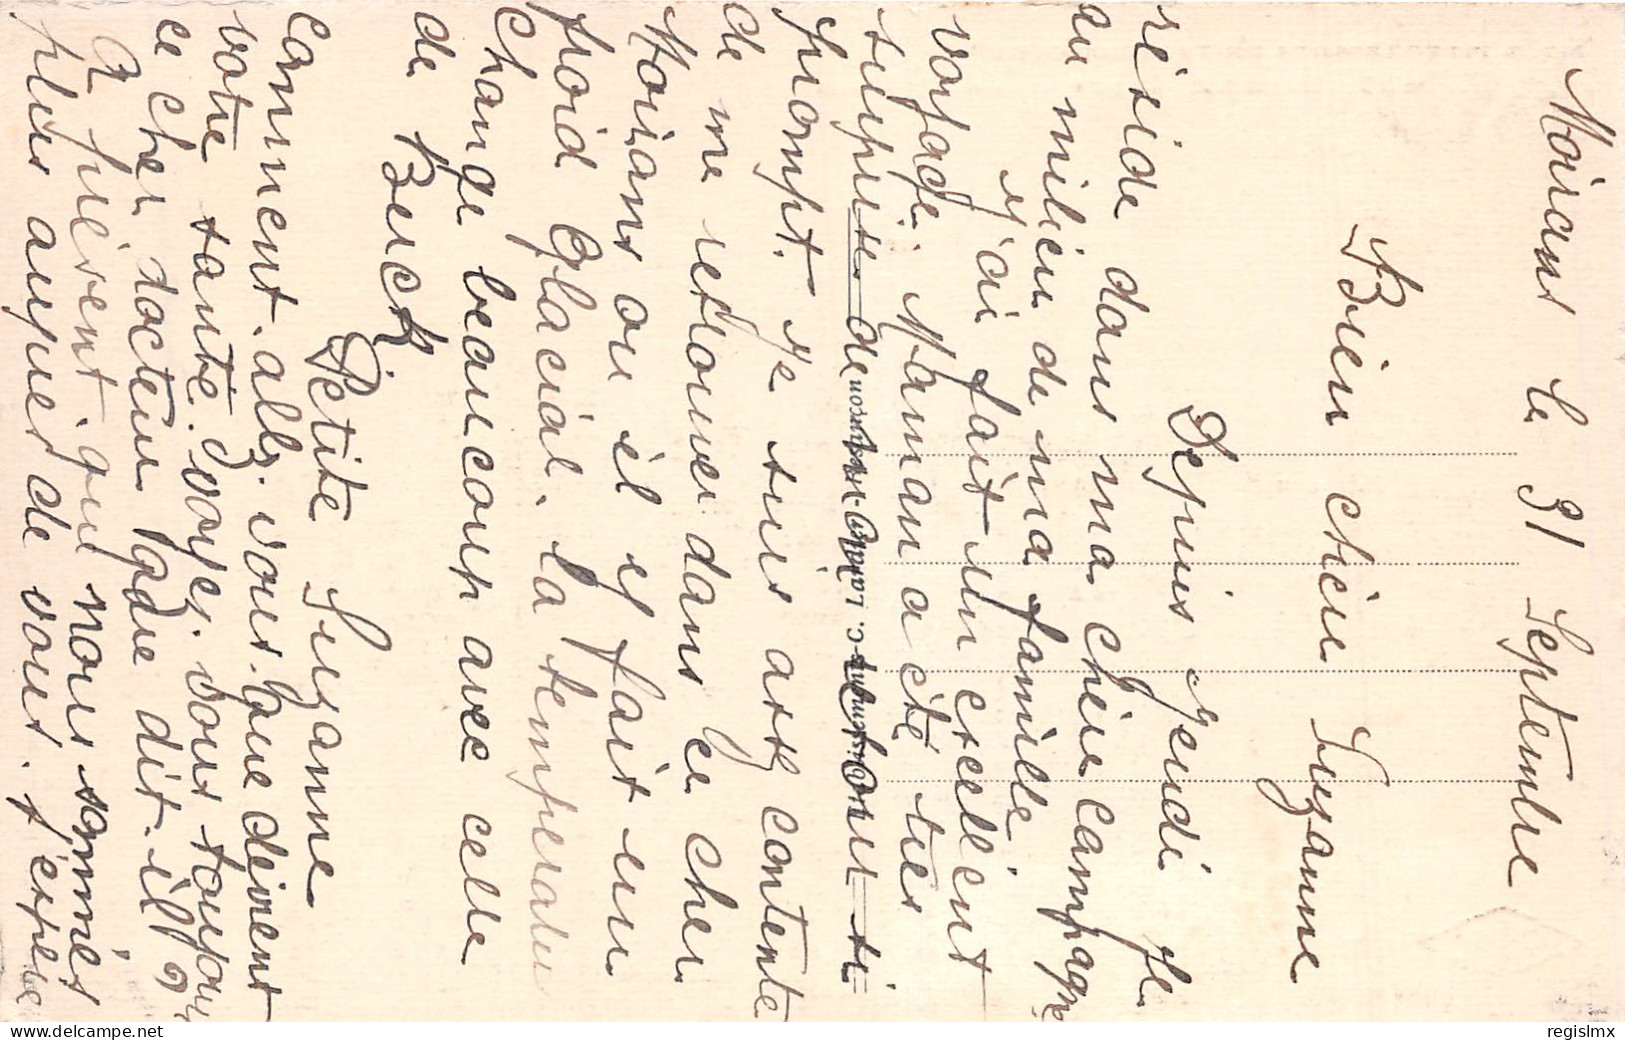 Moirans le 31 Septembre
Bien chère Suzanne
Depuis Jeudi je
réside dans ma chère campagne
au milieu de ma famille
J'ai fait un excellent
voyage. Maman a été très
surprise de mon retour si
prompt. Je suis assez contente
de me retrouver dans ce cher
Moirans ou il y fait un
froid glacial. la temperature
change beaucoup avec celle
de Berck
Petite Suzanne
comment allez vous. que devient
votre santé. voyez vous toujours
ce cher docteur que dit-il?
A présent que nous sommes
plus auprès de vous. j'espère
regislmx
www.delcampe.net